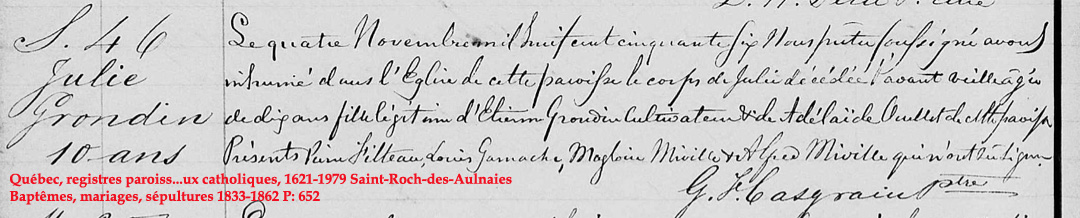 S. 46
Julie
Grondin
10 ans
Le quatre Novembre mil huit cent cinquante six Nous prêtre soussigné avons
inhumé dans l'Eglise de cette paroisse le corps de Julie décédée l'avant veille âgée
de dix ans fille légitime d'Etienne Grondin Cultivateur & de Adélaïde Ouellet de cette paroisse
Présents Pierre Filteau, Louis Gamache, Magloire Miville & Alfred Miville qui n'ont su signer
G. F. Casgrain Ptre
Québec, registres paroiss...ux catholiques, 1621-1979 Saint-Roch-des-Aulnaies
Baptêmes, mariages, sépultures 1833-1862 P: 652